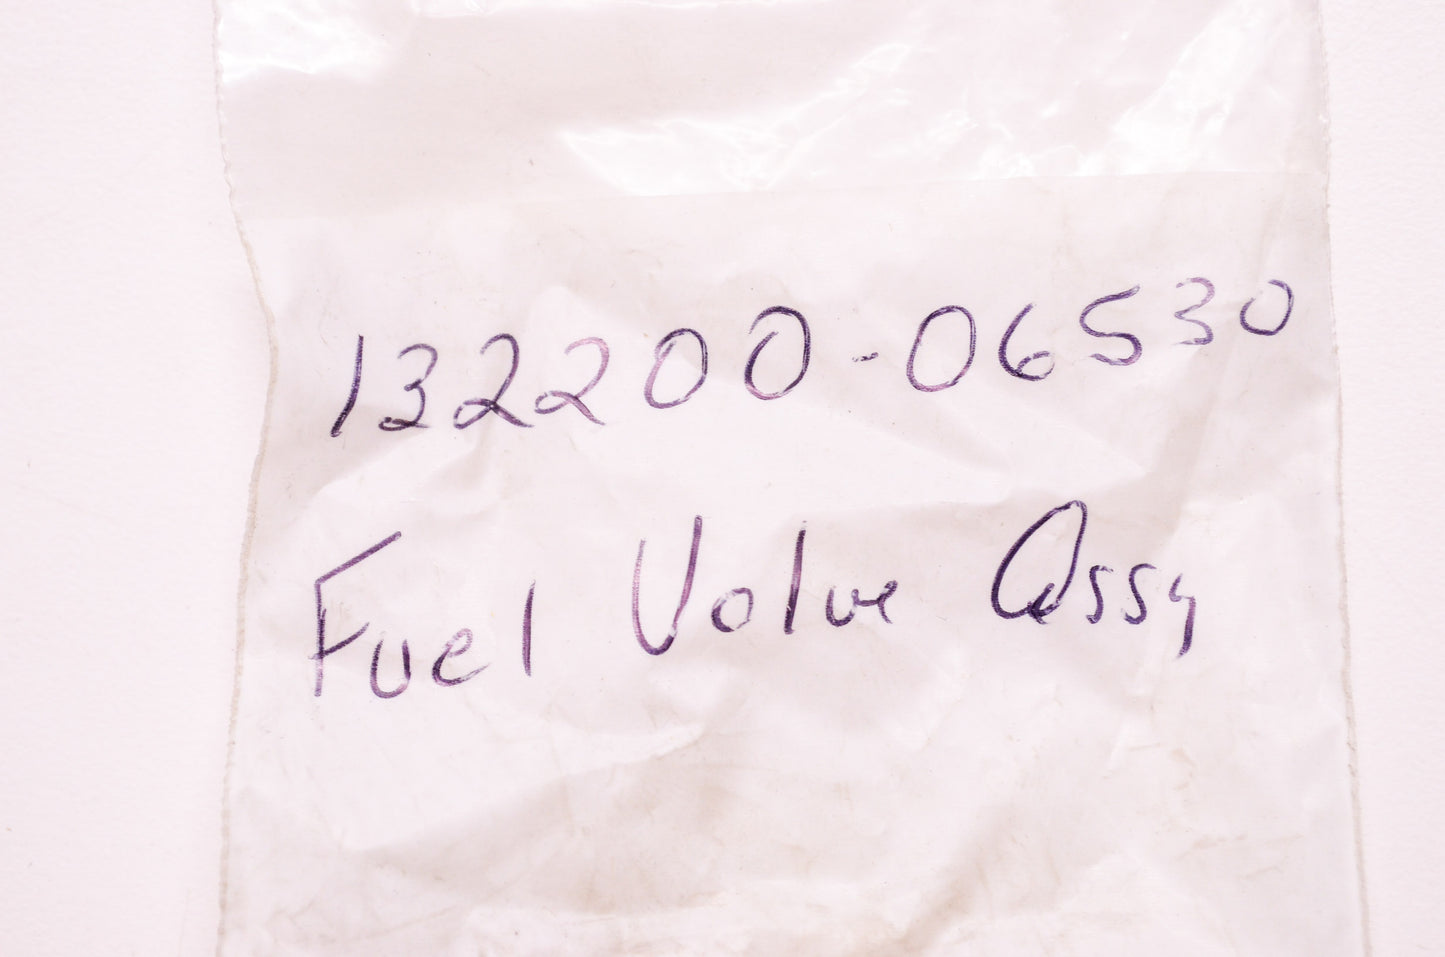 132200-06530
Fuel Valve Assy